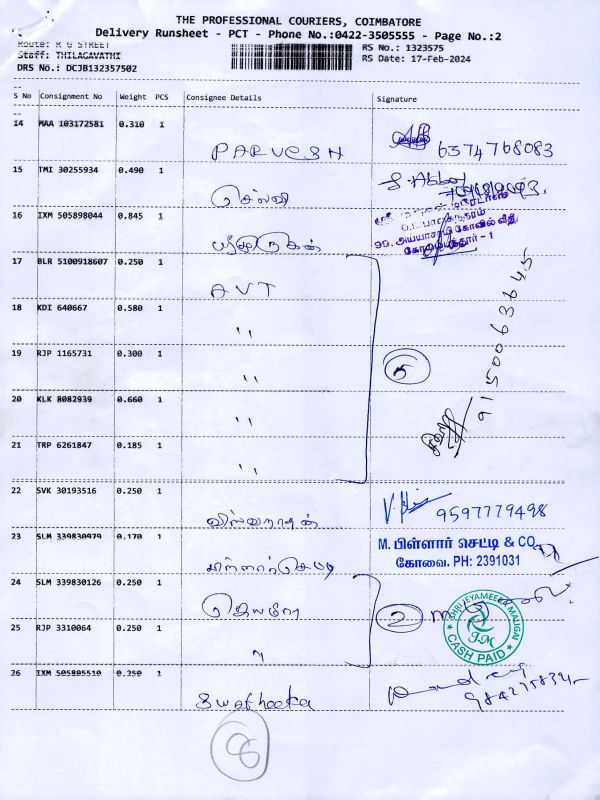 THE PROFESSIONAL COURIERS, COIMBATORE
Delivery Runsheet - PCT - Phone No.:0422-3505555 - Page No.:2
Route: R G STREET
RS No.: 1323575
Staff: THILAGAVATHI
RS Date: 17-Feb-2024
DRS No.: DCJB132357502
S No Consignment No Weight PCS Consignee Details Signature
14 MAA 103172581 0.310 1 PARVESH 6374768083
15 TMI 30255934 0.490 1 செல்வி
16 IXM 505898044 0.845 1
99, அய்யாசாமி கோவில் வீதி
கோயமுத்தூர் - 1
17 BLR 5100918607 0.250 1 AVT
18 KDI 640667 0.580 1 "
19 RJP 1165731 0.300 1 " 5
9150063645
20 KLK 8082939 0.660 1 "
21 TRP 6261847 0.185 1 "
22 SVK 30193516 0.250 1 விஸ்வநாதன் 9597779498
23 SLM 339830979 0.170 1
M. பிள்ளார் செட்டி & CO
கோவை. PH: 2391031
24 SLM 339830126 0.250 1 2
SHRI JEYAMEERA MALIGAI
J.M
CASH PAID
25 RJP 3310064 0.250 1 "
26 IXM 505895510 0.250 1 Swatheeka
8